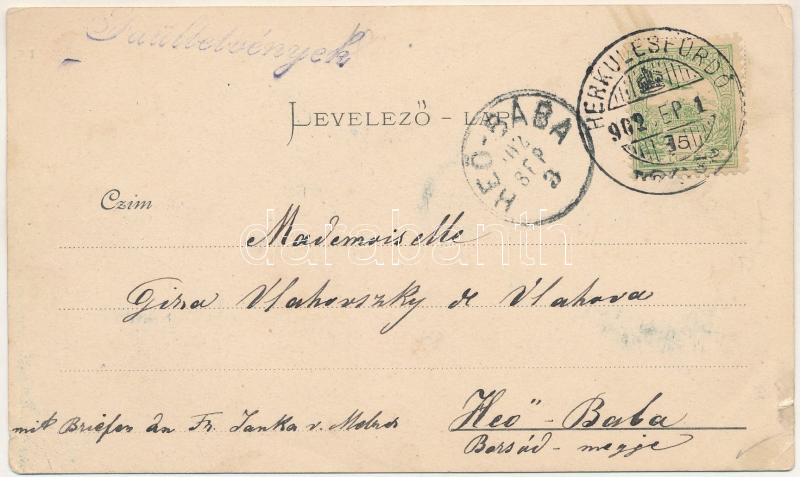 LEVELEZŐ – LAP
HERKULESFÜRDŐ
902 SEP 1
15
HEŐ-BÁBA
902 SEP 3
Czim
Mademoiselle
darabanth
Giza Vlahovszky de Vlahova
mit Briefen an Fr. Janka v.
Heő - Baba
Borsód - megje